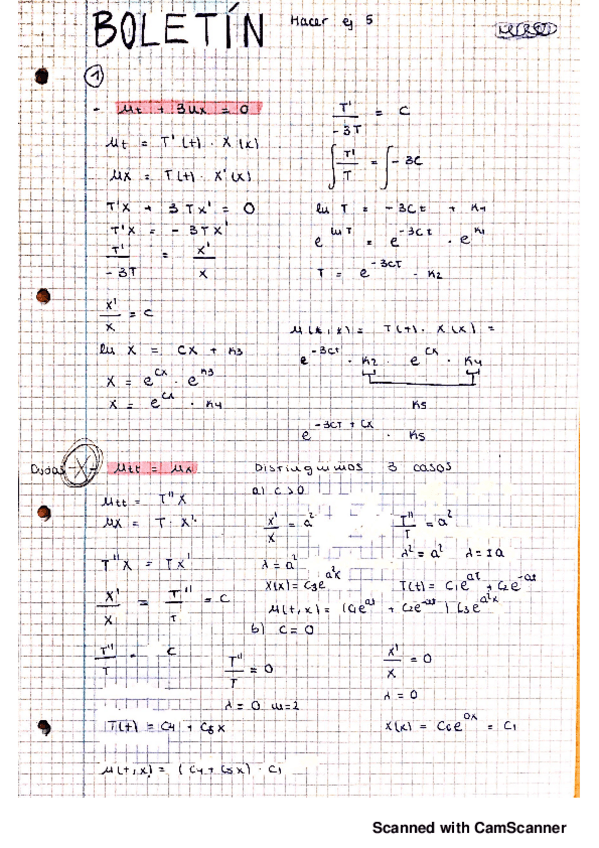 BOLETÍN
Hacer ej 5
1
- ut + 3ux = 0
ut = T'(t) · X(x)
ux = T(t) · X'(x)
T'X + 3TX' = 0
T'X = - 3TX'
T'/-3T = X'/X
X'/X = C
ln X = CX + K3
X = e^CX · e^K3
X = e^CX · K4
T'/-3T = C
∫ T'/T = ∫ -3C
ln T = -3Ct + K1
e^ln T = e^-3Ct · e^K1
T = e^-3CT · K2
u(x,x) = T(t) · X(x) =
e^-3CT · K2 · e^CX · K4
K5
e^-3CT + CX · K5
Dudas X - utt = ux
utt = T''X
ux = T · X'
T''X = TX'
X'/X = T''/T = C
T''/T = C
Distinguimos 3 casos
a) C>0
X'/X = a²
T''/T = a²
λ = a²
λ² = a² λ = ±a
X(x) = C3e^a²x
T(t) = C1e^at + C2e^-at
u(t,x) = (C1e^at + C2e^-at) C3e^a²x
b) C=0
T''/T = 0
X'/X = 0
λ = 0 m=2
λ = 0
T(t) = C4 + C5x
X(x) = C6e^0x = C1
u(t,x) = (C4 + C5x) · C1
Scanned with CamScanner